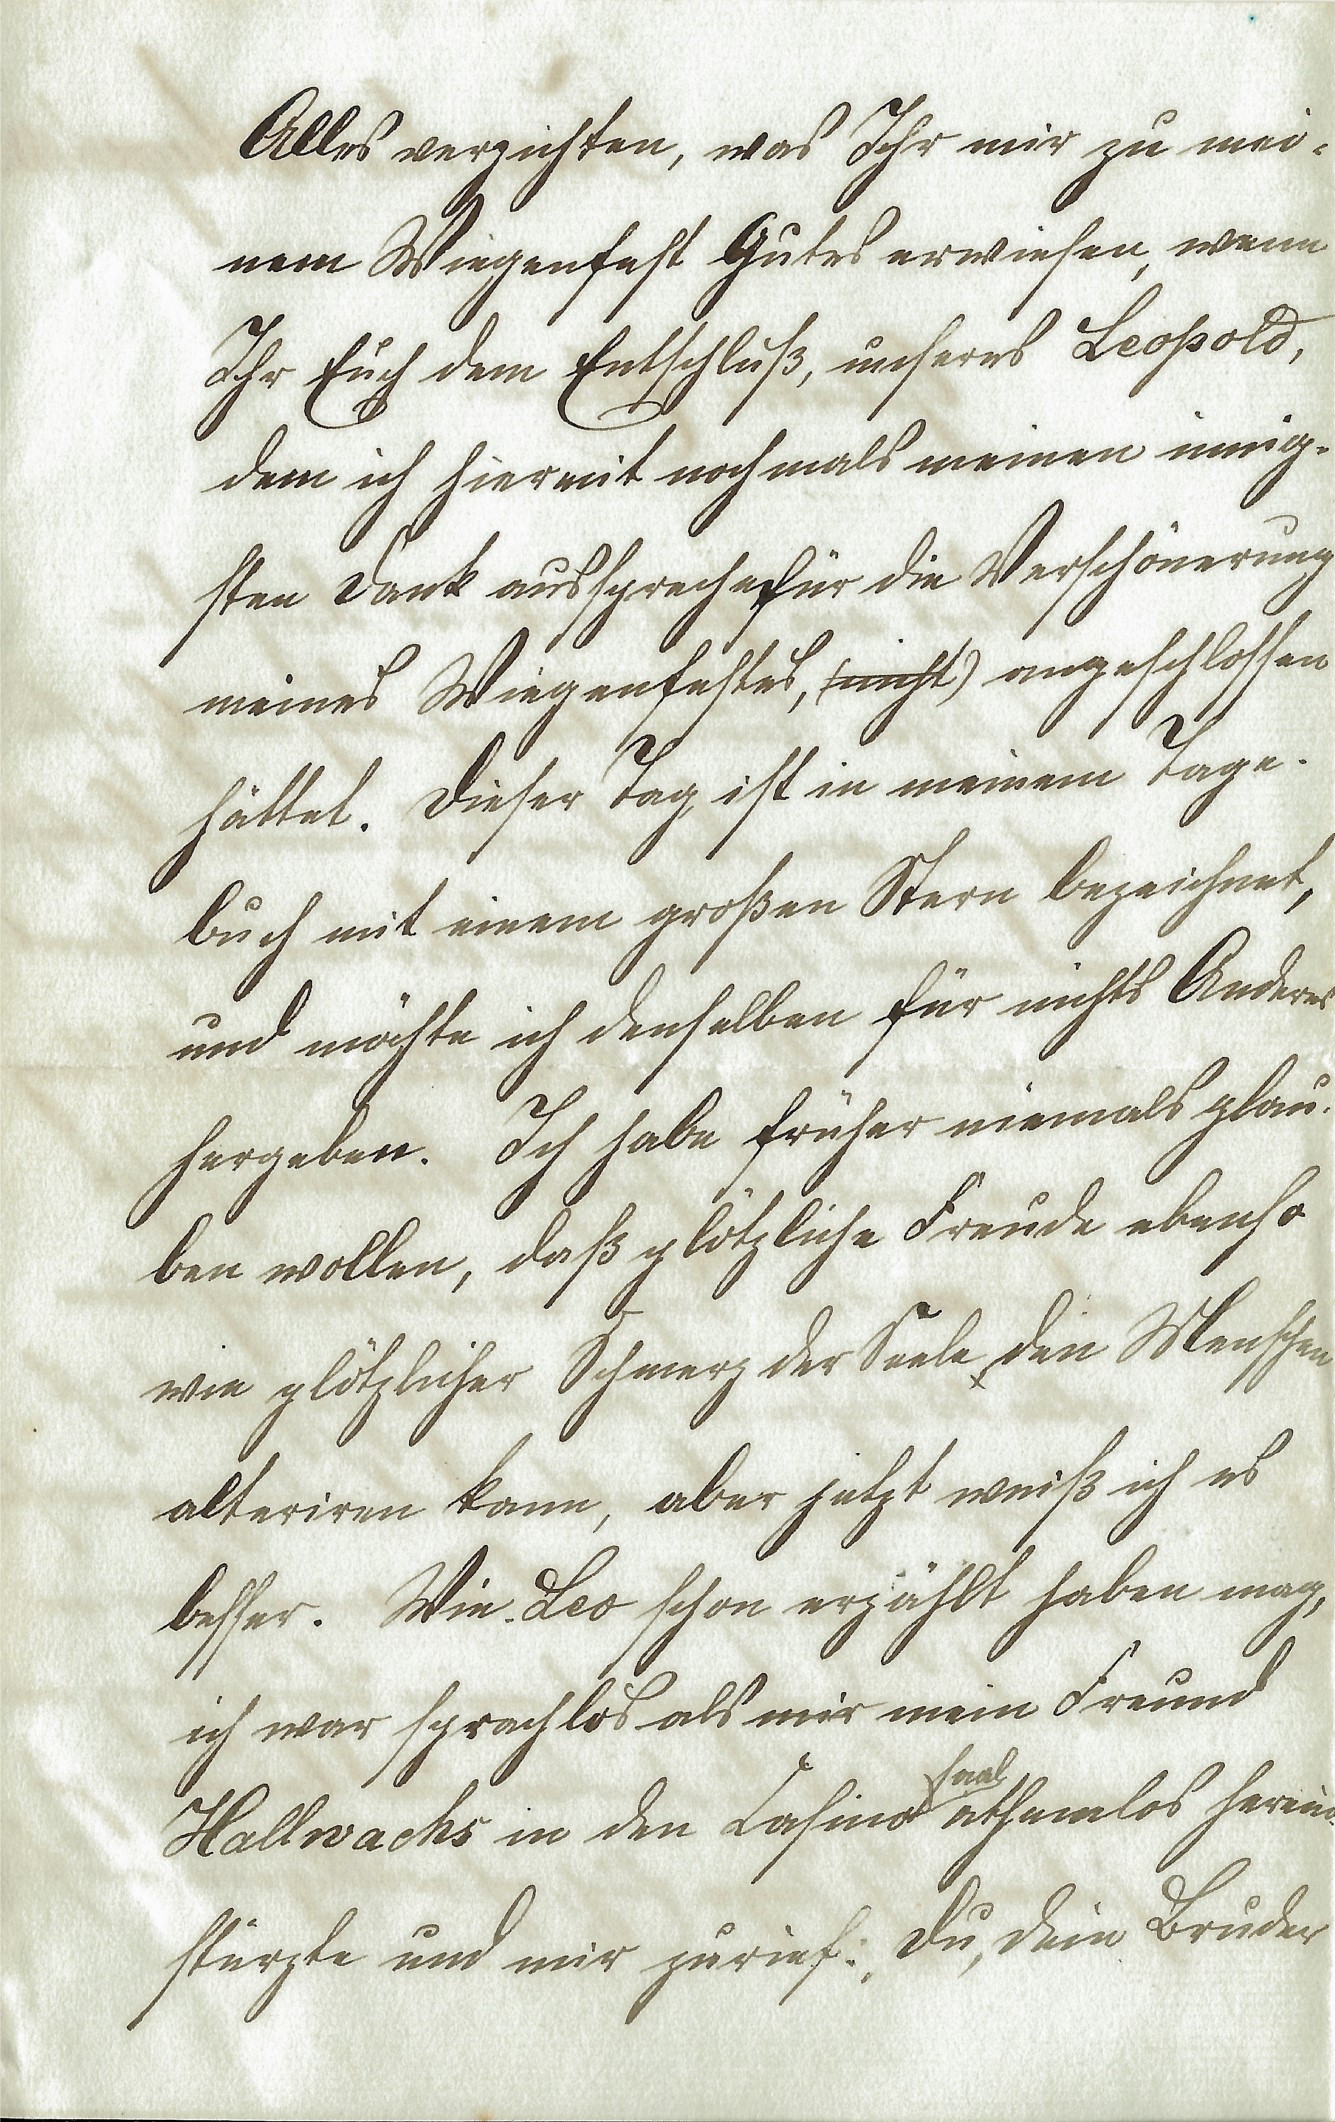 Alles verzichten, was Ihr mir zu mei-
nem Wiegenfest Gutes erwiesen, wenn
Ihr Euch dem Entschluß, unseres Leopold,
dem ich hiermit nochmals meinen innig-
sten Dank ausspreche für die Verschönerung
meines Wiegenfestes, (nicht) angeschlossen
hättet. Dieser Tag ist in meinem Tage-
buch mit einem großen Stern bezeichnet,
und möchte ich denselben für nichts Anderes
hergeben. Ich habe früher niemals glau-
ben wollen, daß plötzliche Freude ebenso
wie plötzlicher Schmerz der Seele, den Menschen
alteriren kann, aber jetzt weiß ich es
besser. Wie Leo schon erzählt haben mag,
ich war sprachlos als mir mein Freund
Hallwachs in den Casinosaal athemlos herein-
stürzte und mir zurief: „Du, dein Bruder